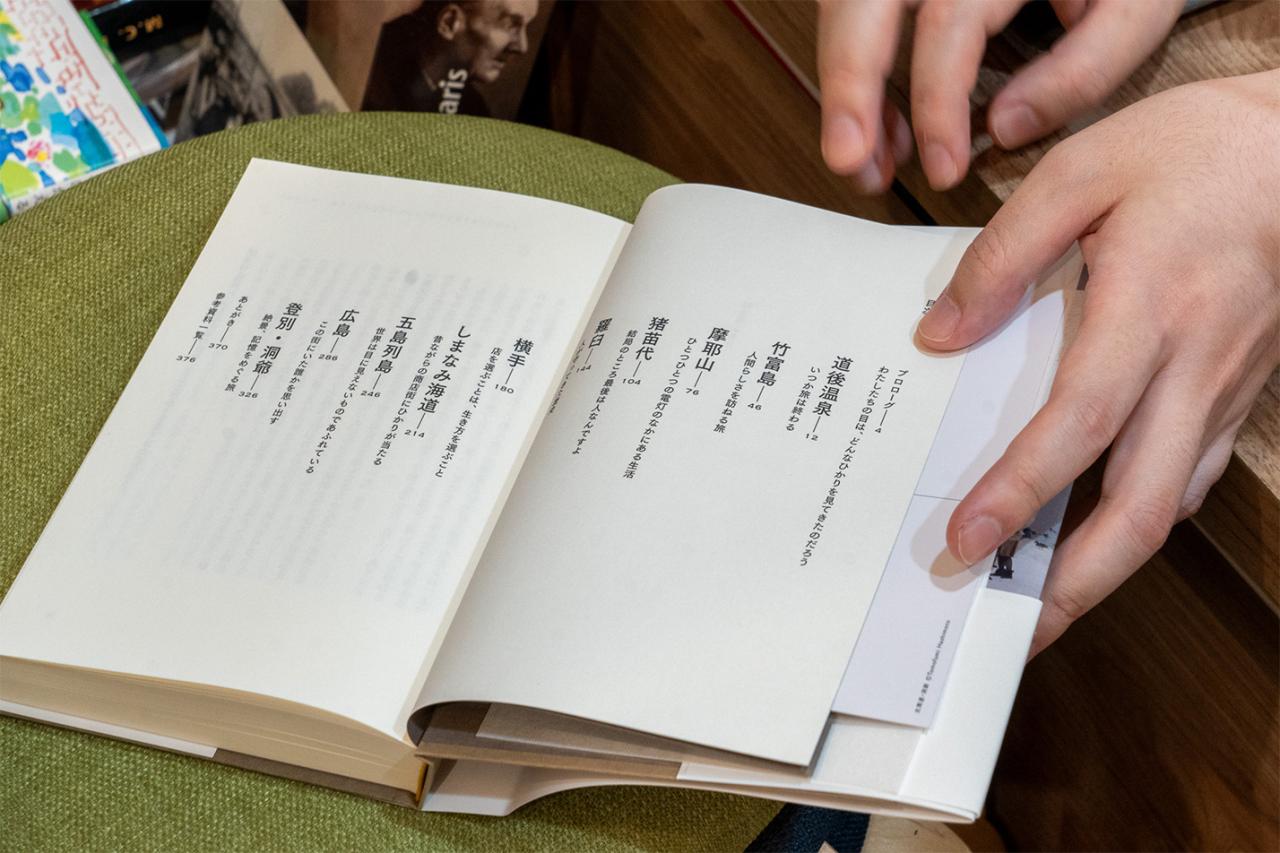 プロローグ—4
わたしたちの目は、どんなひかりを見てきたのだろう
道後温泉—12
いつか旅は終わる
竹富島—46
人間らしさを訪ねる旅
摩耶山—76
ひとつひとつの電灯のなかにある生活
猪苗代—104
結局のところ最後は人なんですよ
羅臼—144
横手—180
店を選ぶことは、生き方を選ぶこと
しまなみ海道—214
昔ながらの商店街にひかりが当たる
五島列島—246
世界は目に見えないものであふれている
広島—286
この街にいた誰かを思い出す
登別・洞爺—326
絶景、記憶をめぐる旅
あとがき—370
参考資料一覧—376
M.C.
aris